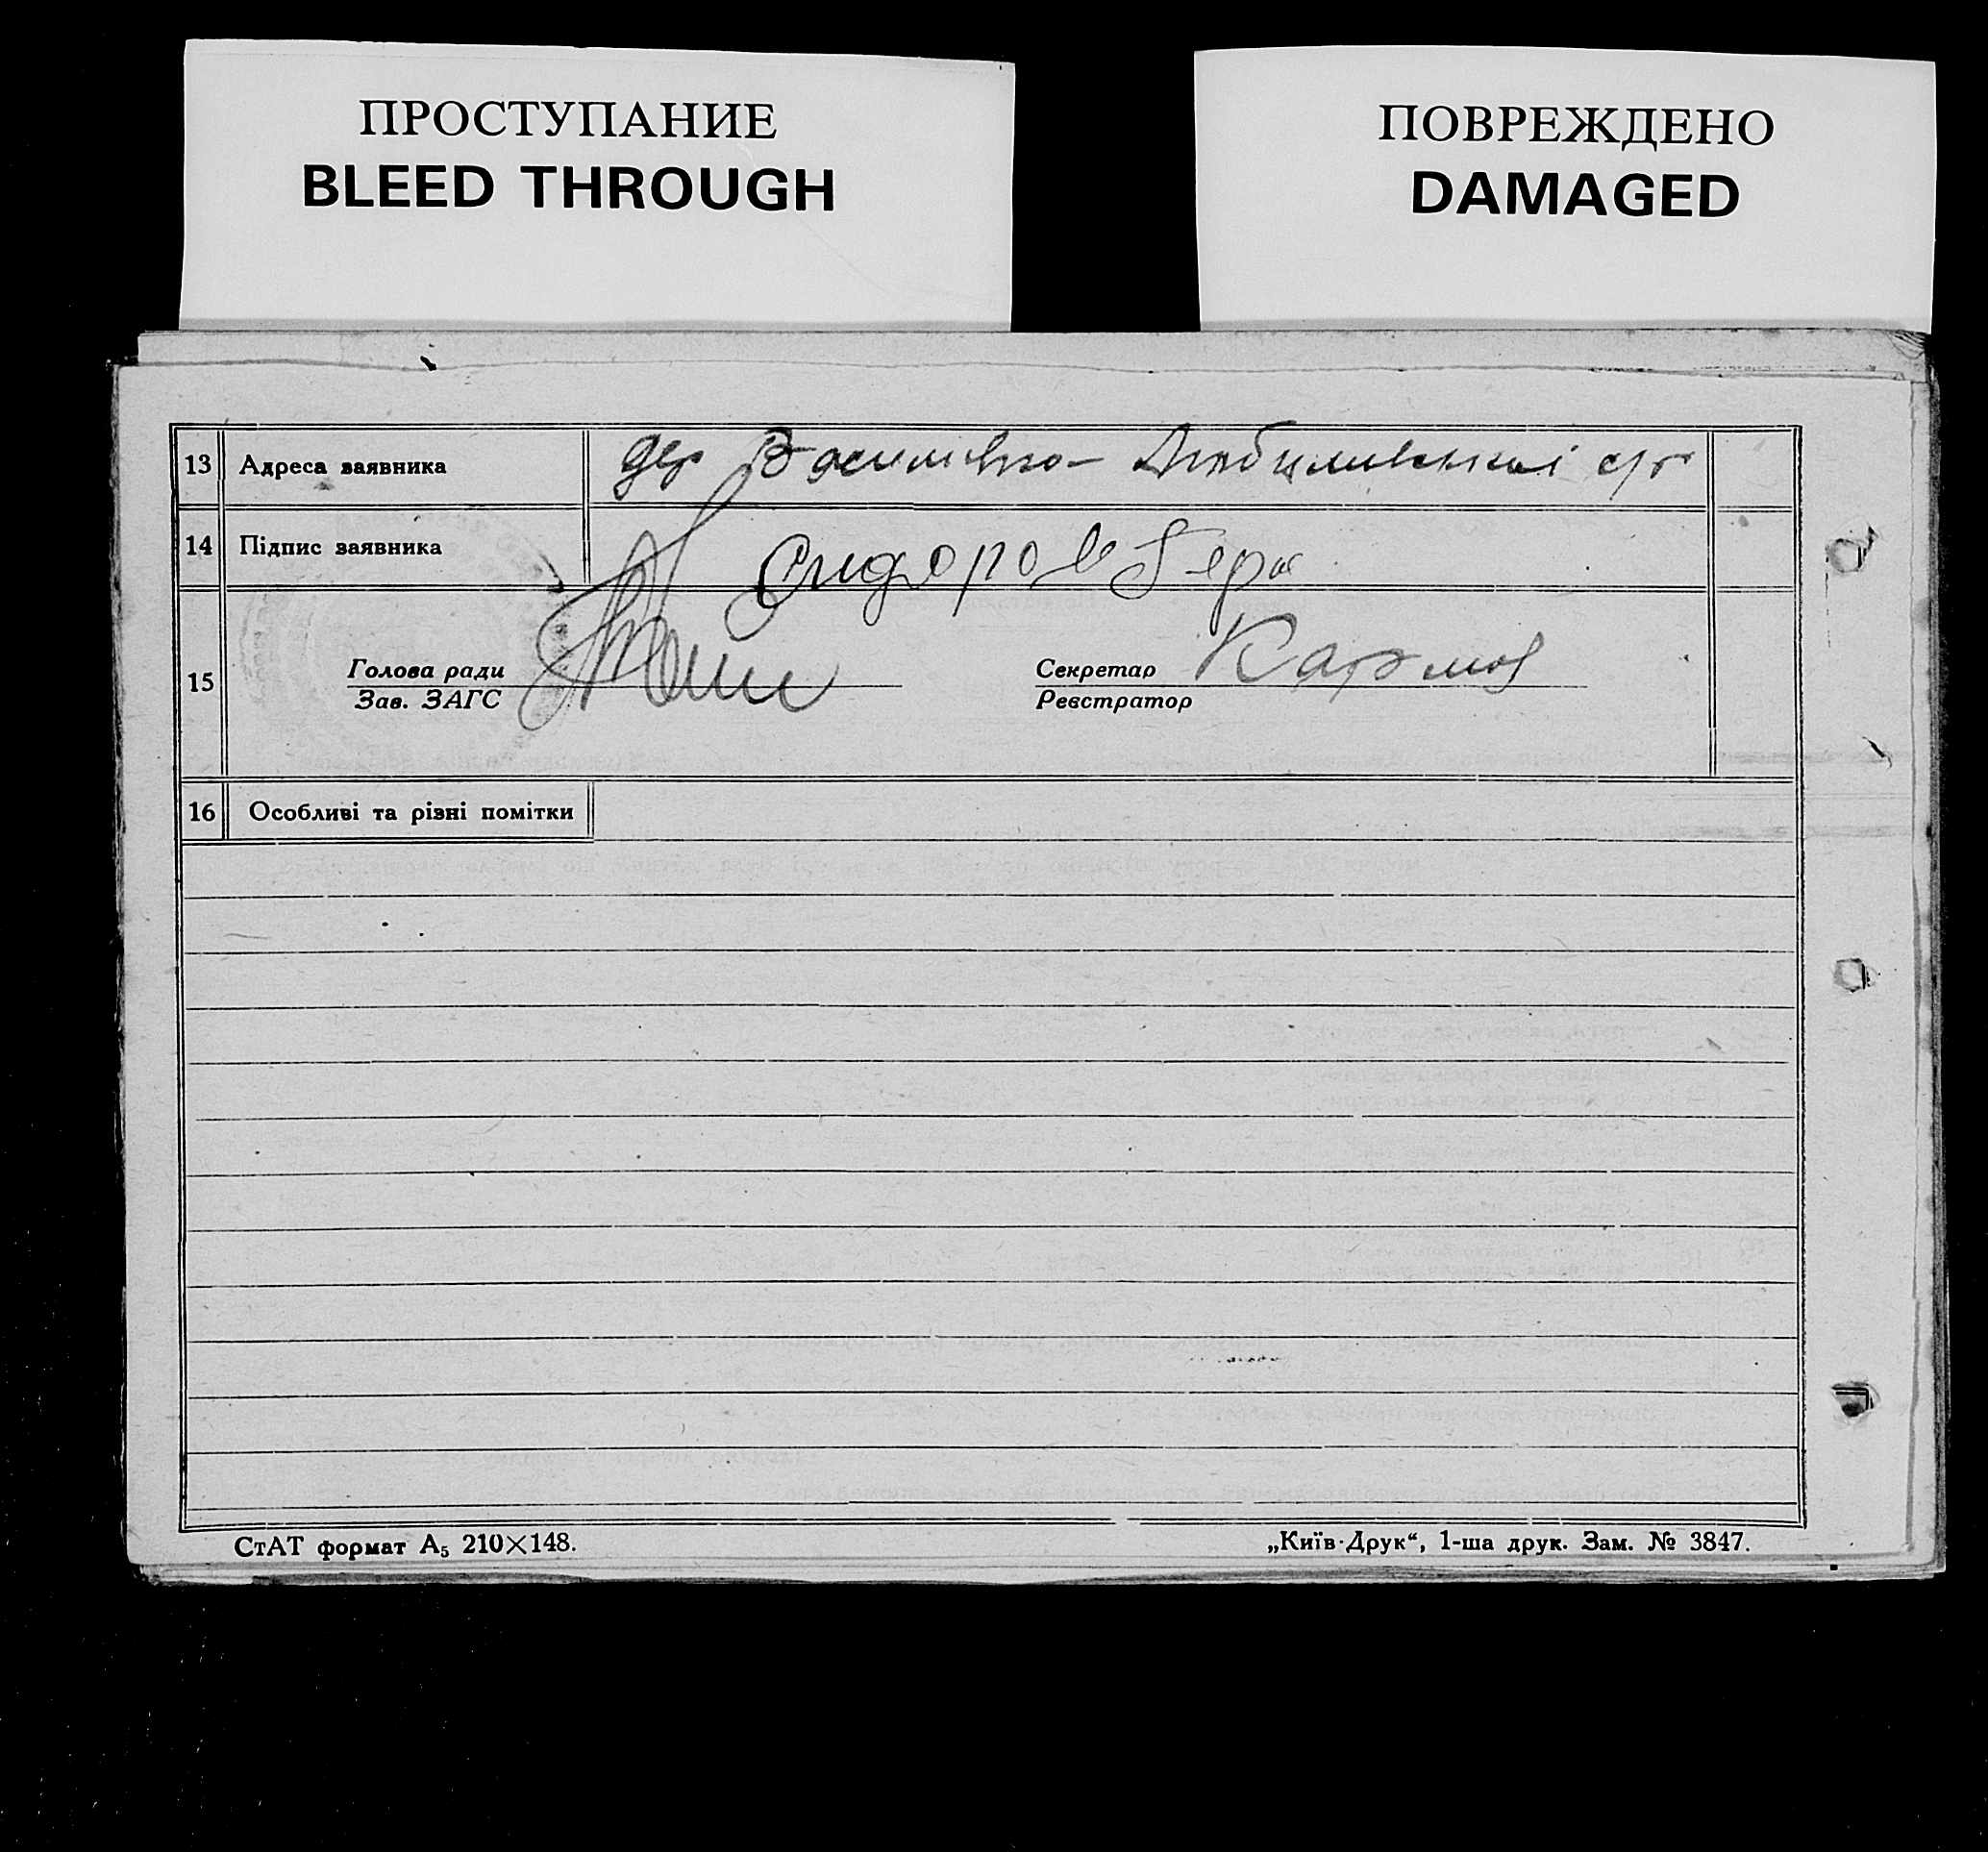 ПРОСТУПАНИЕ
BLEED THROUGH
ПОВРЕЖДЕНО
DAMAGED
13 Адреса заявника дер
14 Підпис заявника Сидоров
15 Голова ради Секретар
Зав. ЗАГС Реєстратор
16 Особливі та різні помітки
СтАТ формат А5 210×148. „Київ-Друк“, 1-ша друк. Зам. № 3847.